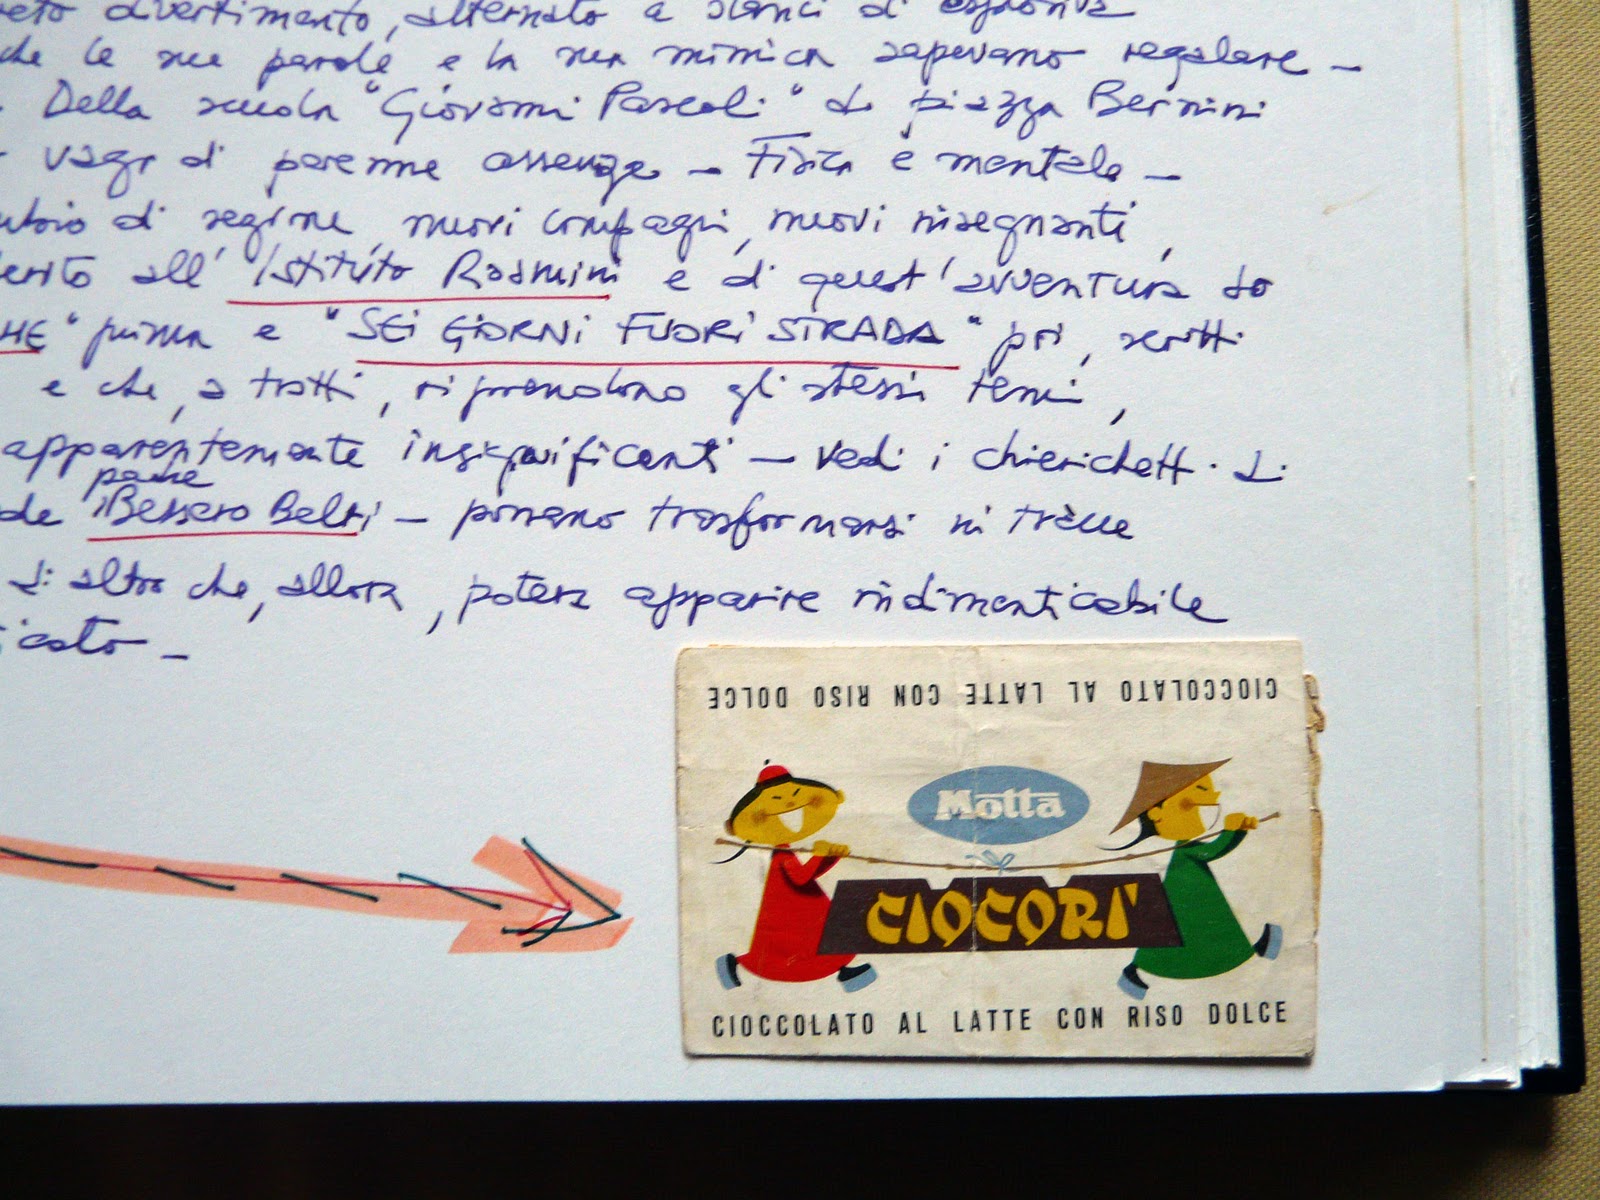 divertimento, alternato a slanci di
che le sue parole e la sua mimica sapevano regalare –
Della scuola "Giovanni Pascoli" di piazza Bernini
vagi di perenne assenza – Fisica e mentale –
di regime, nuovi compagni, nuovi insegnanti,
all'Istituto Rosmini e di quest'avventura ho
HE" prima e "SEI GIORNI FUORI STRADA" poi, scritti
e che, a tratti, riprendono gli stessi temi,
apparentemente insignificanti – vedi i chierichetti di
padre
Bessero Belti – possano trasformarsi in tracce
di altro che, allora, poteva apparire indimenticabile
icato –
CIOCCOLATO AL LATTE CON RISO DOLCE
Motta
CIOCORI'
CIOCCOLATO AL LATTE CON RISO DOLCE